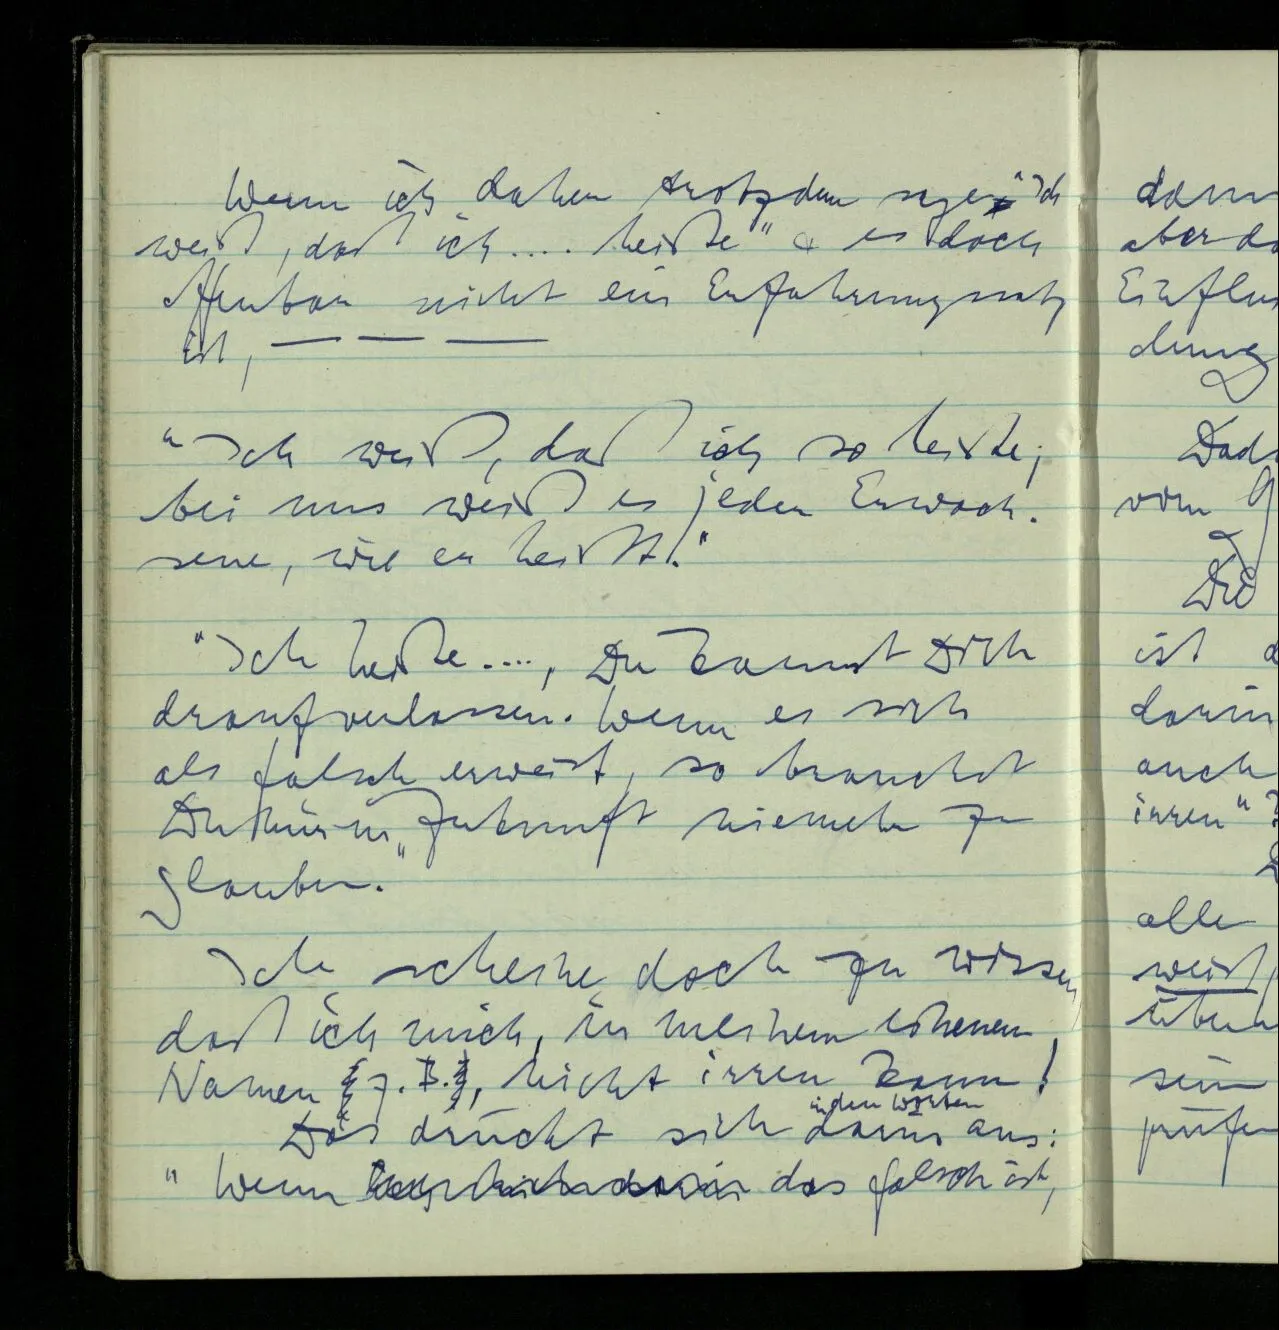 Wenn ich daher trotzdem sage "Ich
weiß, daß ich .... heiße" & es doch
offenbar nicht ein Erfahrungssatz
ist, — — —
"Ich weiß, daß ich so heiße;
bei uns weiß es jeder Erwach-
sene, wie er heißt."
"Ich heiße ...., Du kannst Dich
drauf verlassen. Wenn es sich
als falsch erweist, so brauchst
Du mir in Zukunft niemehr zu
glauben."
Ich scheine doch zu wissen,
daß ich mich, in meinem eigenen
Namen z.B., nicht irren kann!
in den Worten
Das drückt sich darin aus:
"Wenn das falsch ist,
dann
aber da
Einflus
dung
vom
Die
ist
darin
auch
irren"
alle
weist
über
sein
prüfe